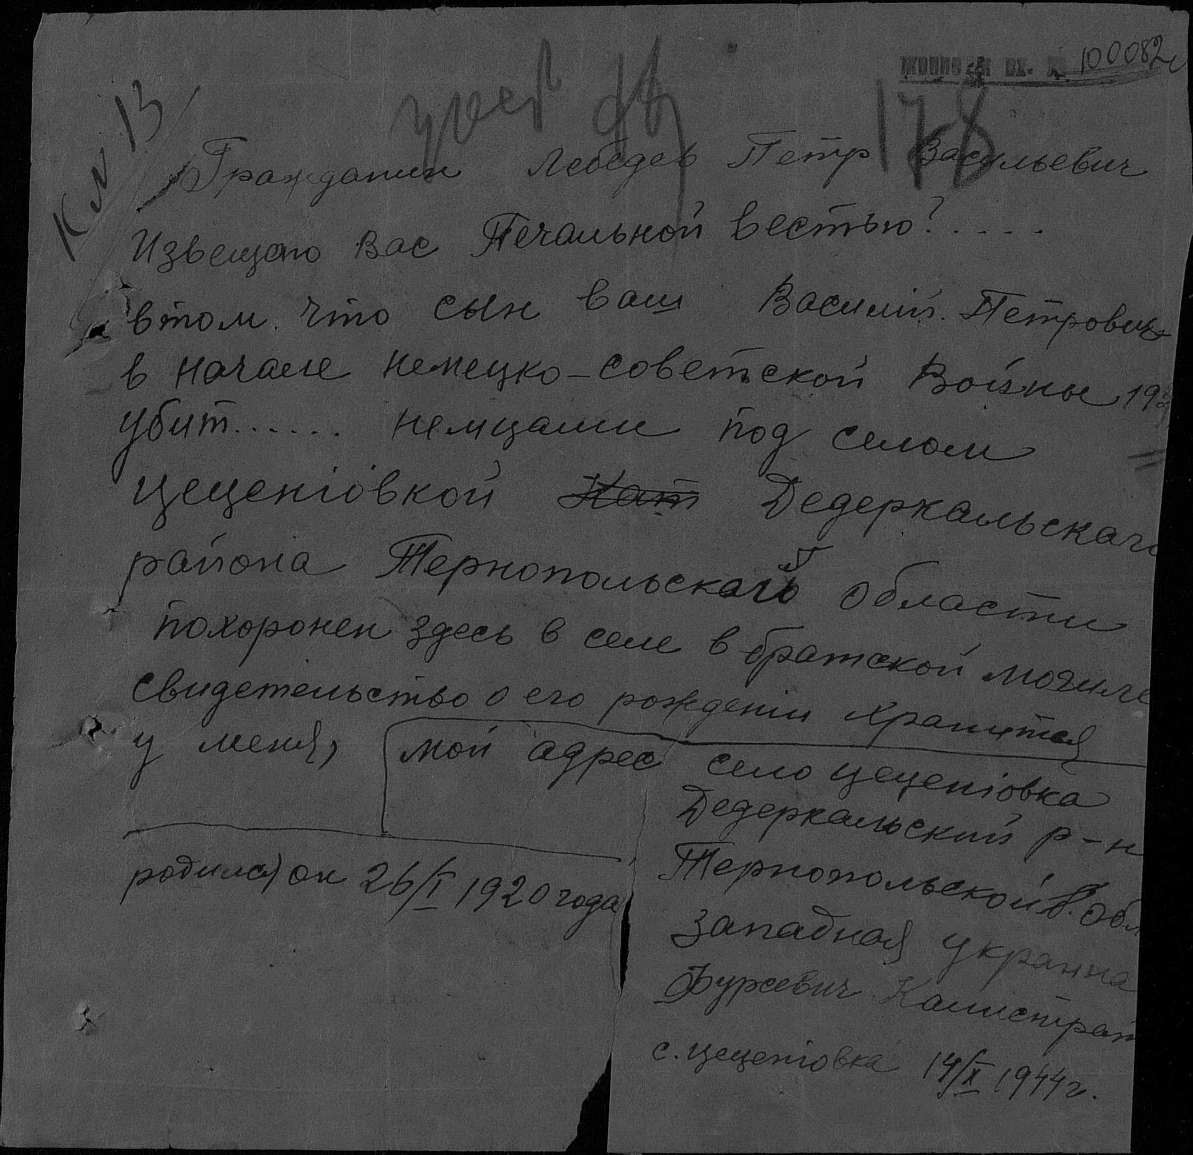 вх. № 100082
178
К № 13
Гражданин Лебедев Петр Васильевич
Извещаю Вас Печальной вестью?.....
втом что сын ваш Василий. Петрович
в начале немецко-советской Войны 19
убит...... немцами под селом
цеценіовкой Дедеркальскаго
района Тернопольскаго области
похоронен здесь в селе в братской могиле
свидетельство о его рождении хранится
у меня, мой адрес село цеценіовка
Дедеркальский р-н
Тернопольской обл
западная украина
родился он 26/I 1920 года
Фурсевич Калистрат
с. цеценіовка 14/X 1944 г.